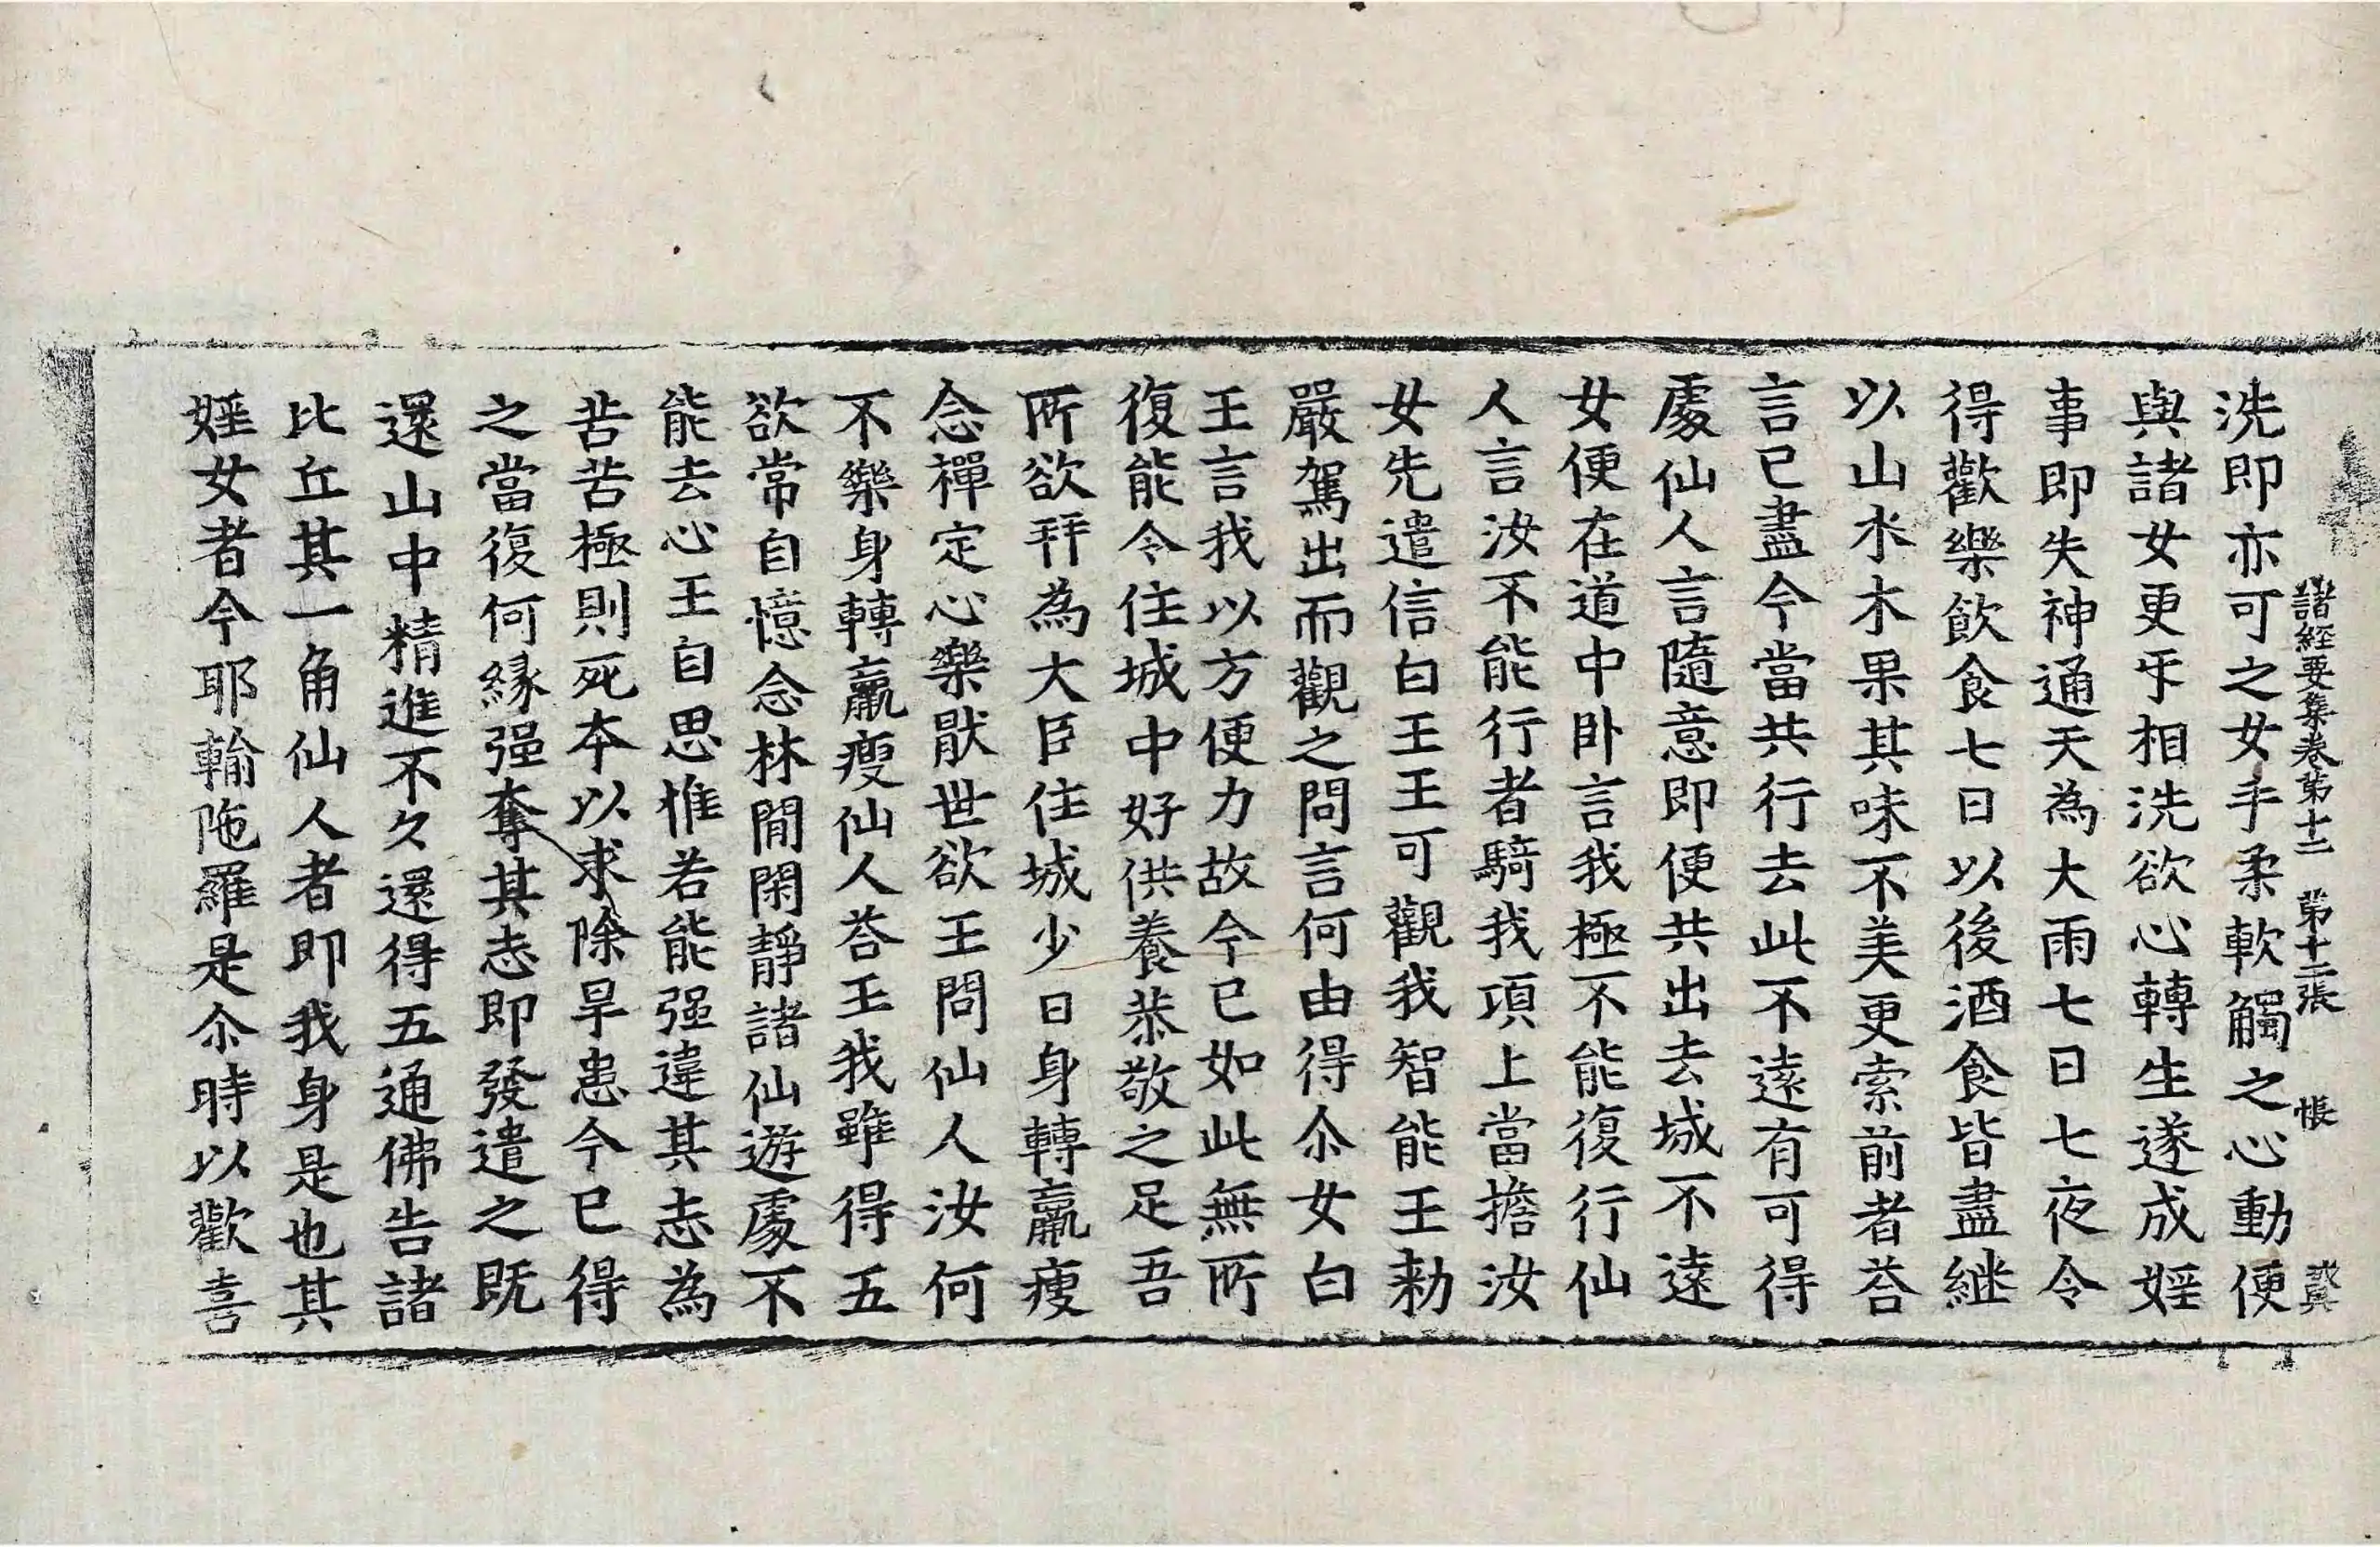 諸經要集卷第十二 第十二張 悵
洗即亦可之女手柔軟觸之心動便
與諸女更㸦相洗欲心轉生遂成婬
事即失神通天為大雨七日七夜令
得歡樂飲食七日以後酒食皆盡継
以山水木果其味不美更索前者荅
言已盡今當共行去此不遠有可得
處仙人言隨意即便共出去城不遠
女便在道中卧言我極不能復行仙
人言汝不能行者騎我項上當擔汝
女先遣信白王王可觀我智能王勑
嚴駕出而觀之問言何由得尒女白
王言我以方便力故今已如此無所
復能令住城中好供養恭敬之足吾
所欲拜為大臣住城少日身轉羸瘦
念禪定心樂猒世欲王問仙人汝何
不樂身轉羸瘦仙人荅王我雖得五
欲常自憶念林閒閑靜諸仙遊處不
能去心王自思惟若能强違其志為
苦苦極則死本以求除旱患今已得
之當復何緣强奪其志即發遣之既
還山中精進不久還得五通佛告諸
比丘其一角仙人者即我身是也其
婬女者今耶輸陁羅是尒時以歡喜